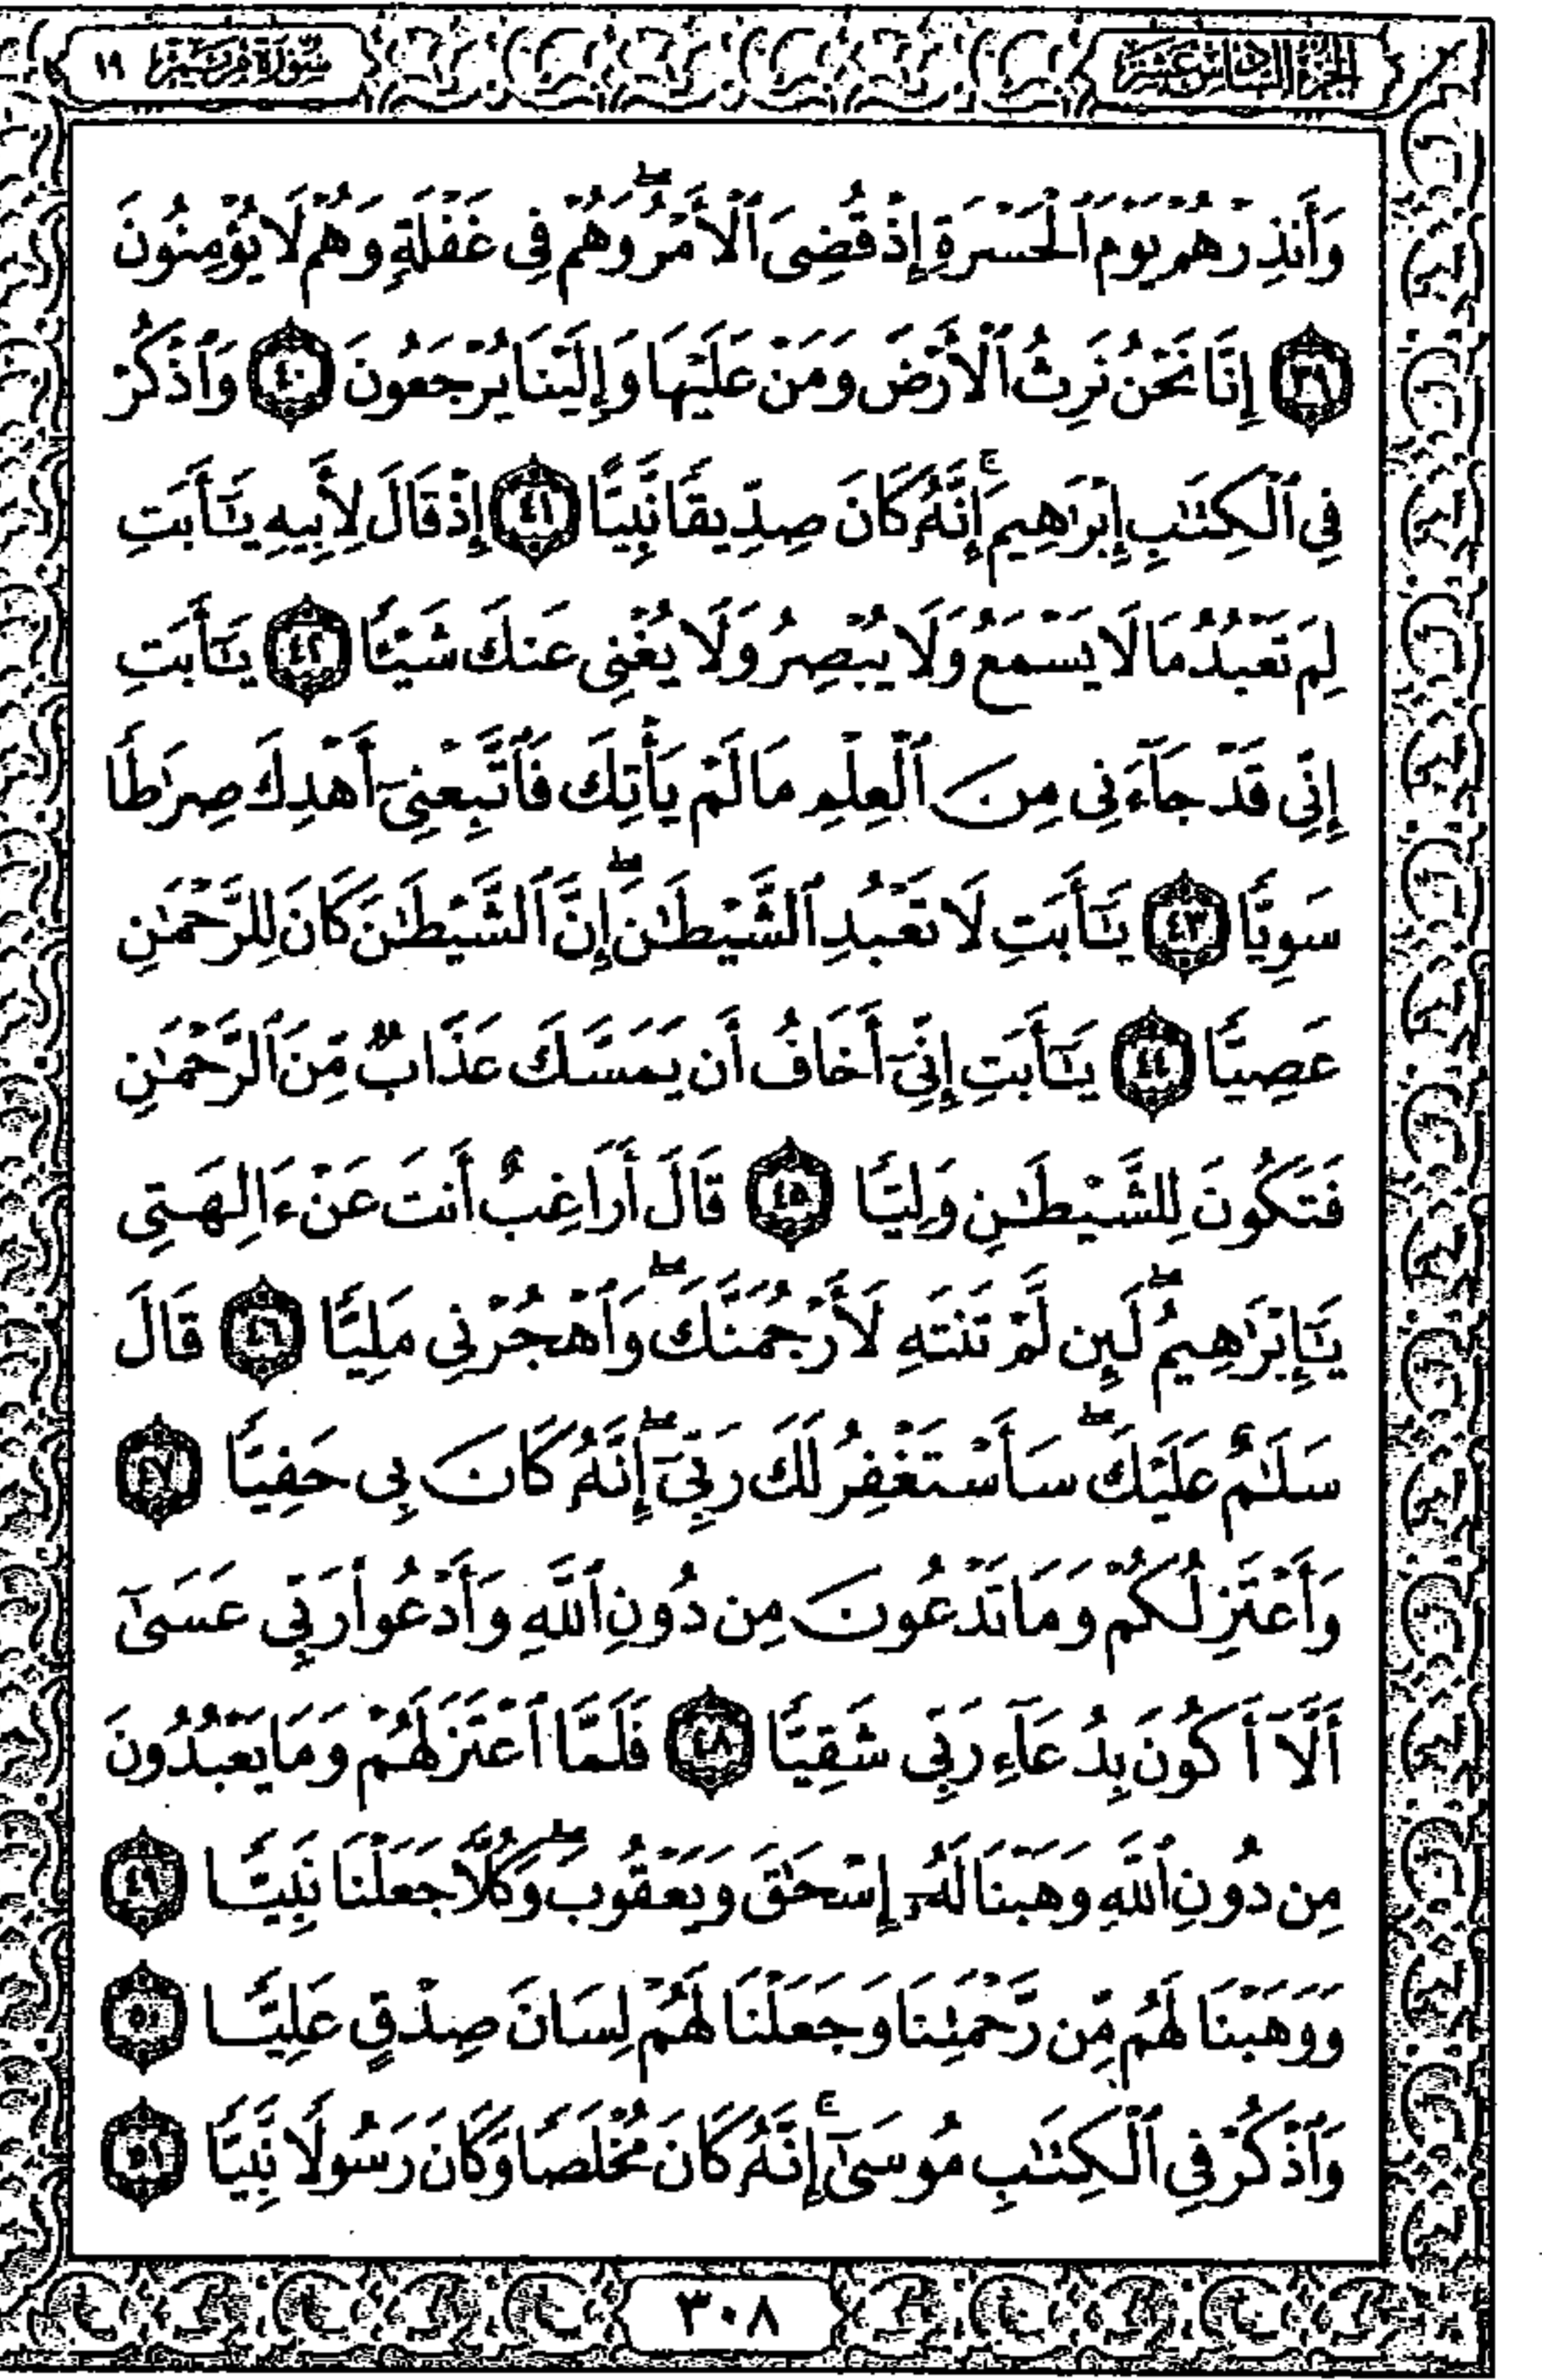 الجزء السادس عشر
سورة مريم ١٩
وَأَنذِرْهُمْ يَوْمَ ٱلْحَسْرَةِ إِذْ قُضِىَ ٱلْأَمْرُ وَهُمْ فِى غَفْلَةٍ وَهُمْ لَا يُؤْمِنُونَ
٣٩ إِنَّا نَحْنُ نَرِثُ ٱلْأَرْضَ وَمَنْ عَلَيْهَا وَإِلَيْنَا يُرْجَعُونَ ٤٠ وَٱذْكُرْ
فِى ٱلْكِتَٰبِ إِبْرَٰهِيمَ ۚ إِنَّهُۥ كَانَ صِدِّيقًا نَّبِيًّا ٤١ إِذْ قَالَ لِأَبِيهِ يَٰٓأَبَتِ
لِمَ تَعْبُدُ مَا لَا يَسْمَعُ وَلَا يُبْصِرُ وَلَا يُغْنِى عَنكَ شَيْـًٔا ٤٢ يَٰٓأَبَتِ
إِنِّى قَدْ جَآءَنِى مِنَ ٱلْعِلْمِ مَا لَمْ يَأْتِكَ فَٱتَّبِعْنِىٓ أَهْدِكَ صِرَٰطًا
سَوِيًّا ٤٣ يَٰٓأَبَتِ لَا تَعْبُدِ ٱلشَّيْطَٰنَ ۖ إِنَّ ٱلشَّيْطَٰنَ كَانَ لِلرَّحْمَٰنِ
عَصِيًّا ٤٤ يَٰٓأَبَتِ إِنِّىٓ أَخَافُ أَن يَمَسَّكَ عَذَابٌ مِّنَ ٱلرَّحْمَٰنِ
فَتَكُونَ لِلشَّيْطَٰنِ وَلِيًّا ٤٥ قَالَ أَرَاغِبٌ أَنتَ عَنْ ءَالِهَتِى
يَٰٓإِبْرَٰهِيمُ ۖ لَئِن لَّمْ تَنتَهِ لَأَرْجُمَنَّكَ ۖ وَٱهْجُرْنِى مَلِيًّا ٤٦ قَالَ
سَلَٰمٌ عَلَيْكَ ۖ سَأَسْتَغْفِرُ لَكَ رَبِّىٓ ۖ إِنَّهُۥ كَانَ بِى حَفِيًّا ٤٧
وَأَعْتَزِلُكُمْ وَمَا تَدْعُونَ مِن دُونِ ٱللَّهِ وَأَدْعُوا۟ رَبِّى عَسَىٰٓ
أَلَّآ أَكُونَ بِدُعَآءِ رَبِّى شَقِيًّا ٤٨ فَلَمَّا ٱعْتَزَلَهُمْ وَمَا يَعْبُدُونَ
مِن دُونِ ٱللَّهِ وَهَبْنَا لَهُۥٓ إِسْحَٰقَ وَيَعْقُوبَ ۖ وَكُلًّا جَعَلْنَا نَبِيًّا ٤٩
وَوَهَبْنَا لَهُم مِّن رَّحْمَتِنَا وَجَعَلْنَا لَهُمْ لِسَانَ صِدْقٍ عَلِيًّا ٥٠
وَٱذْكُرْ فِى ٱلْكِتَٰبِ مُوسَىٰٓ ۚ إِنَّهُۥ كَانَ مُخْلَصًا وَكَانَ رَسُولًا نَّبِيًّا ٥١
٣٠٨